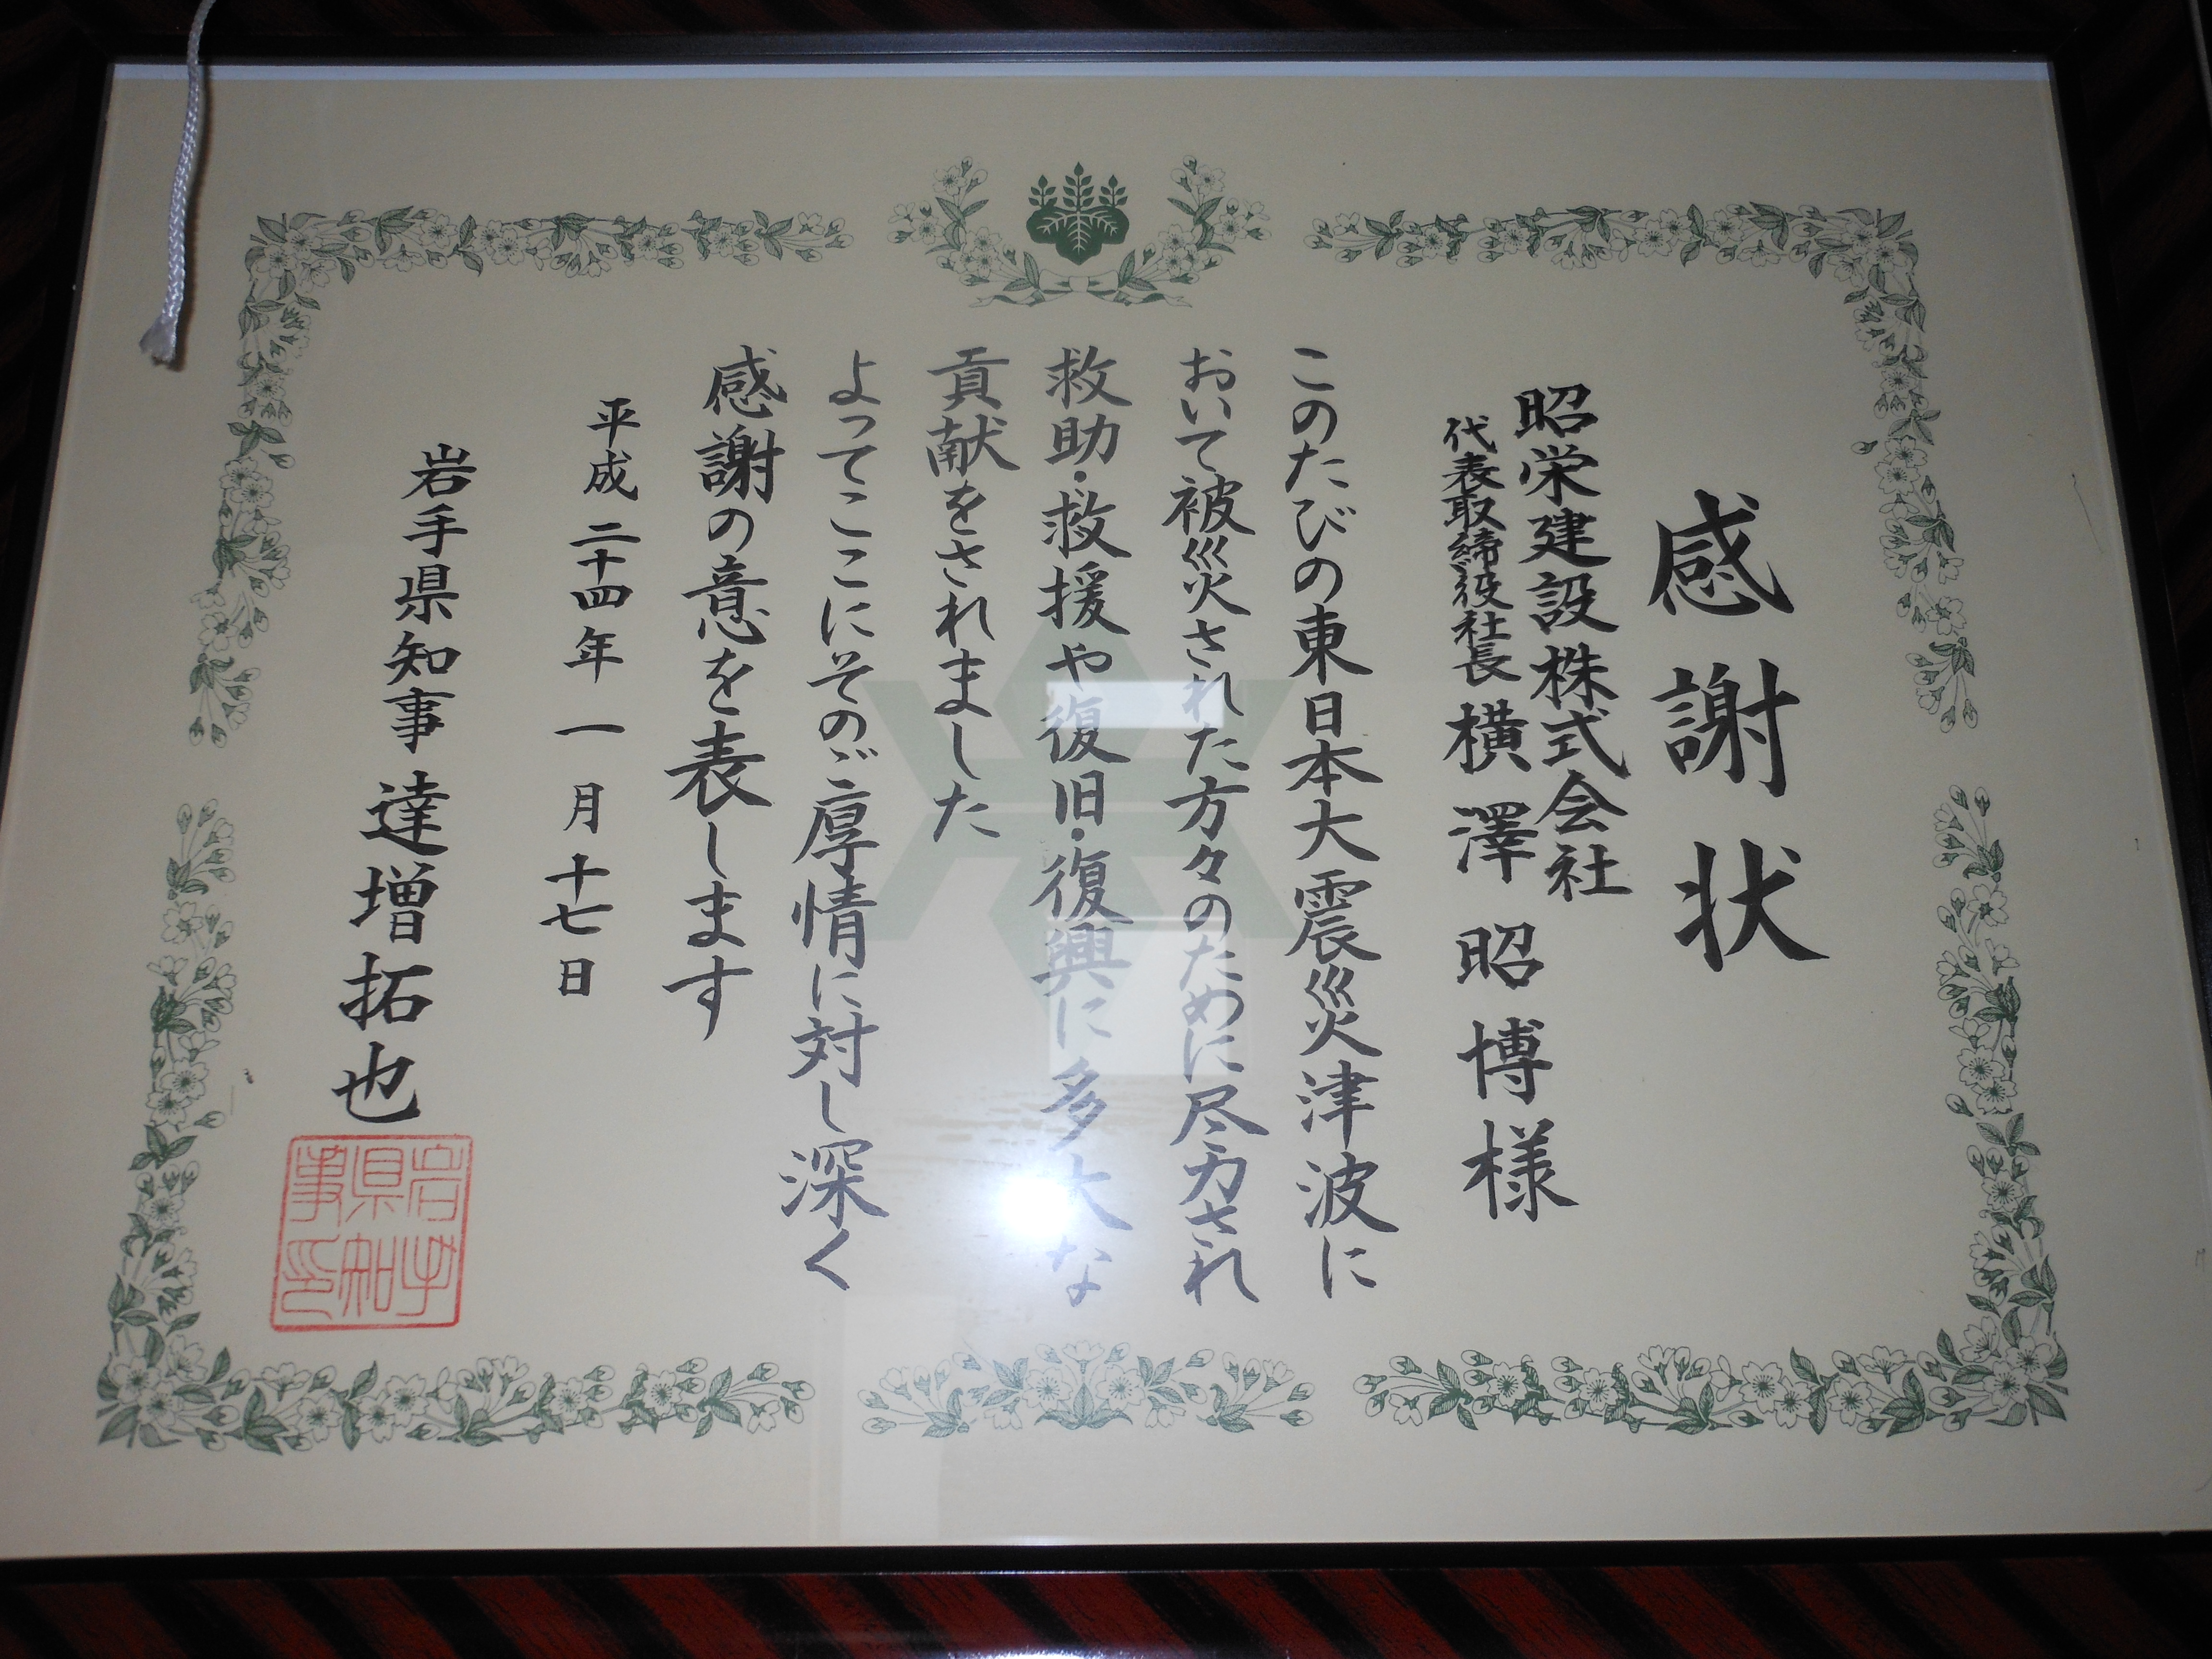 感謝状
昭栄建設株式会社
代表取締役社長 横澤昭博様
このたびの東日本大震災津波に
おいて被災された方々のために尽力され
救助・救援や復旧・復興に多大な
貢献をされました
よってここにそのご厚情に対し深く
感謝の意を表します
平成二十四年一月十七日
岩手県知事 達増拓也
岩手
県知
事印